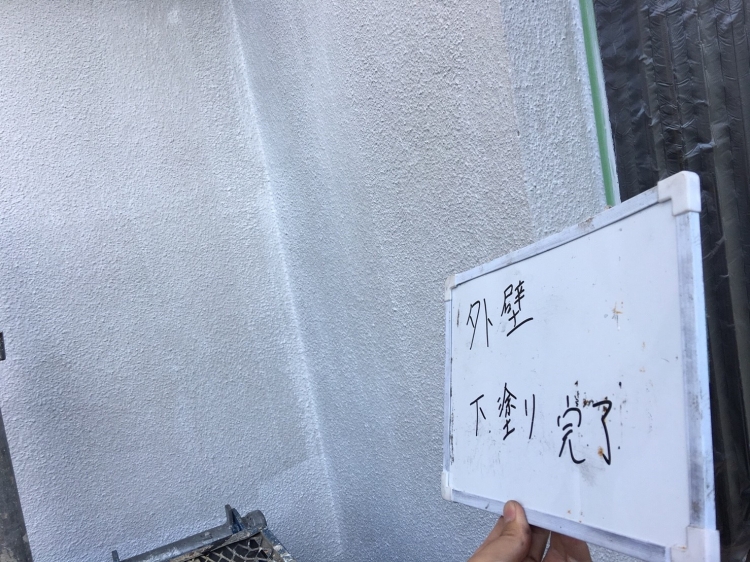 外壁
下塗り完了